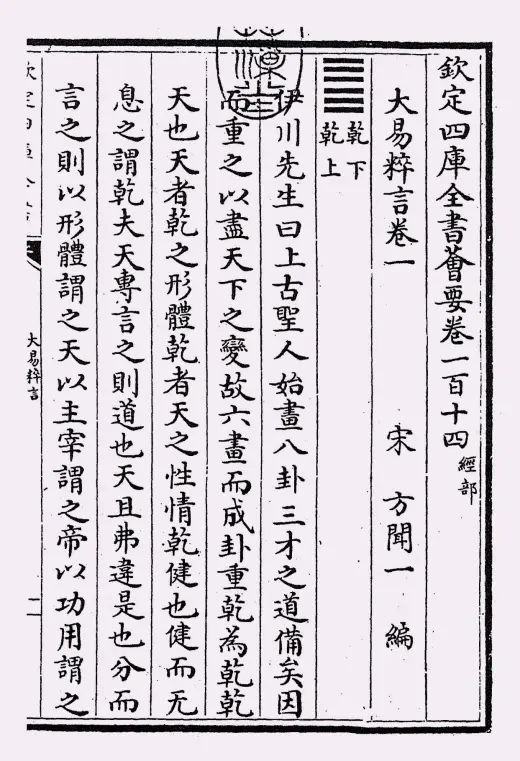 欽定四庫全書薈要卷一百十四 經部
大易粹言卷一 宋 方聞一 編
乾下
乾上
伊川先生曰上古聖人始畫八卦三才之道備矣因
而重之以盡天下之變故六畫而成卦重乾為乾乾
天也天者乾之形體乾者天之性情乾健也健而无
息之謂乾夫天專言之則道也天且弗違是也分而
言之則以形體謂之天以主宰謂之帝以功用謂之
大易粹言
二